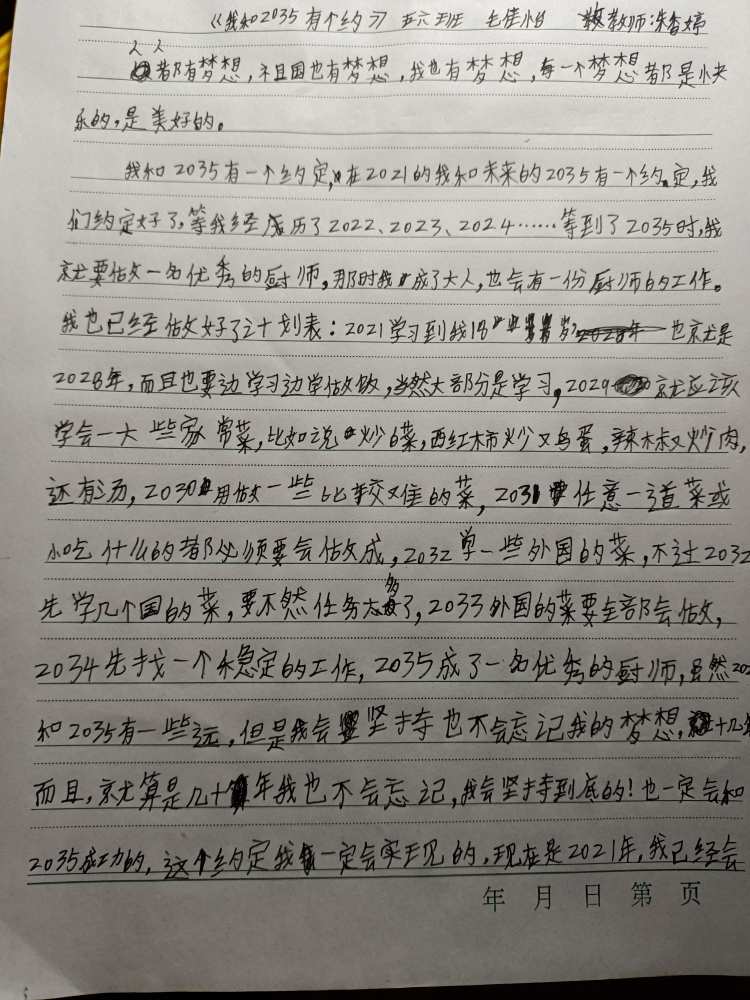 《我和2035有个约》 五六班 毛佳怡 教师:朱香婷
人人都有梦想,祖国也有梦想,我也有梦想,每一个梦想都是快
乐的,是美好的。
我和2035有一个约定,在2021的我和未来的2035有一个约定,我
们约定好了,等我经历了2022、2023、2024……等到了2035时,我
就要做一名优秀的厨师,那时我成了大人,也会有一份厨师的工作。
我也已经做好了计划表:2021学习到我18岁 也就是
2028年,而且也要边学习边学做饭,当然大部分是学习,2029就应该
学会一大些家常菜,比如说炒白菜,西红柿炒又鸟蛋,辣椒炒肉,
还有汤,2030用做一些比较难的菜,2031任意一道菜或
小吃什么的都必须要会做成,2032学一些外国的菜,不过2032
先学几个国的菜,要不然任务太多了,2033外国的菜要全部会做,
2034先找一个稳定的工作,2035成了一名优秀的厨师,虽然202
和2035有一些远,但是我会坚持也不会忘记我的梦想,十几年
而且,就算是几十年我也不会忘记,我会坚持到底的!也一定会和
2035成功的,这个约定我一定会实现的,现在是2021年,我已经会
年 月 日 第 页